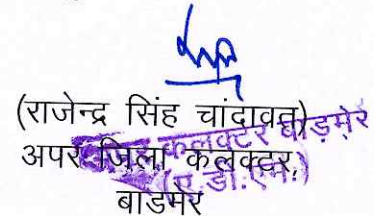 (राजेन्द्र सिंह चांदावत)
अपर जिला कलक्टर,
बाडमेर
कलक्टर बाड़मेर
(ए.डी.एम.)